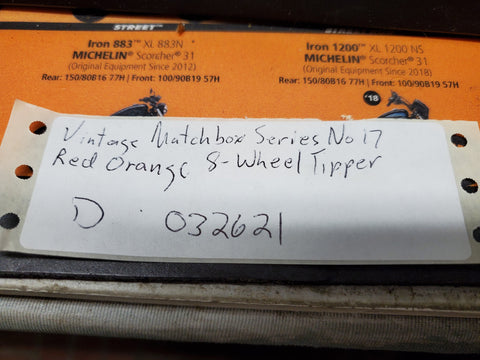 STREET™
Iron 883™ XL 883N
MICHELIN® Scorcher® 31
(Original Equipment Since 2012)
Rear: 150/80B16 77H | Front: 100/90B19 57H
Iron 1200™ XL 1200 NS
MICHELIN® Scorcher® 31
(Original Equipment Since 2018)
Rear: 150/80B16 77H | Front: 100/90B19 57H
'18
Vintage Matchbox Series No 17
Red Orange 8-Wheel Tipper
D 032621